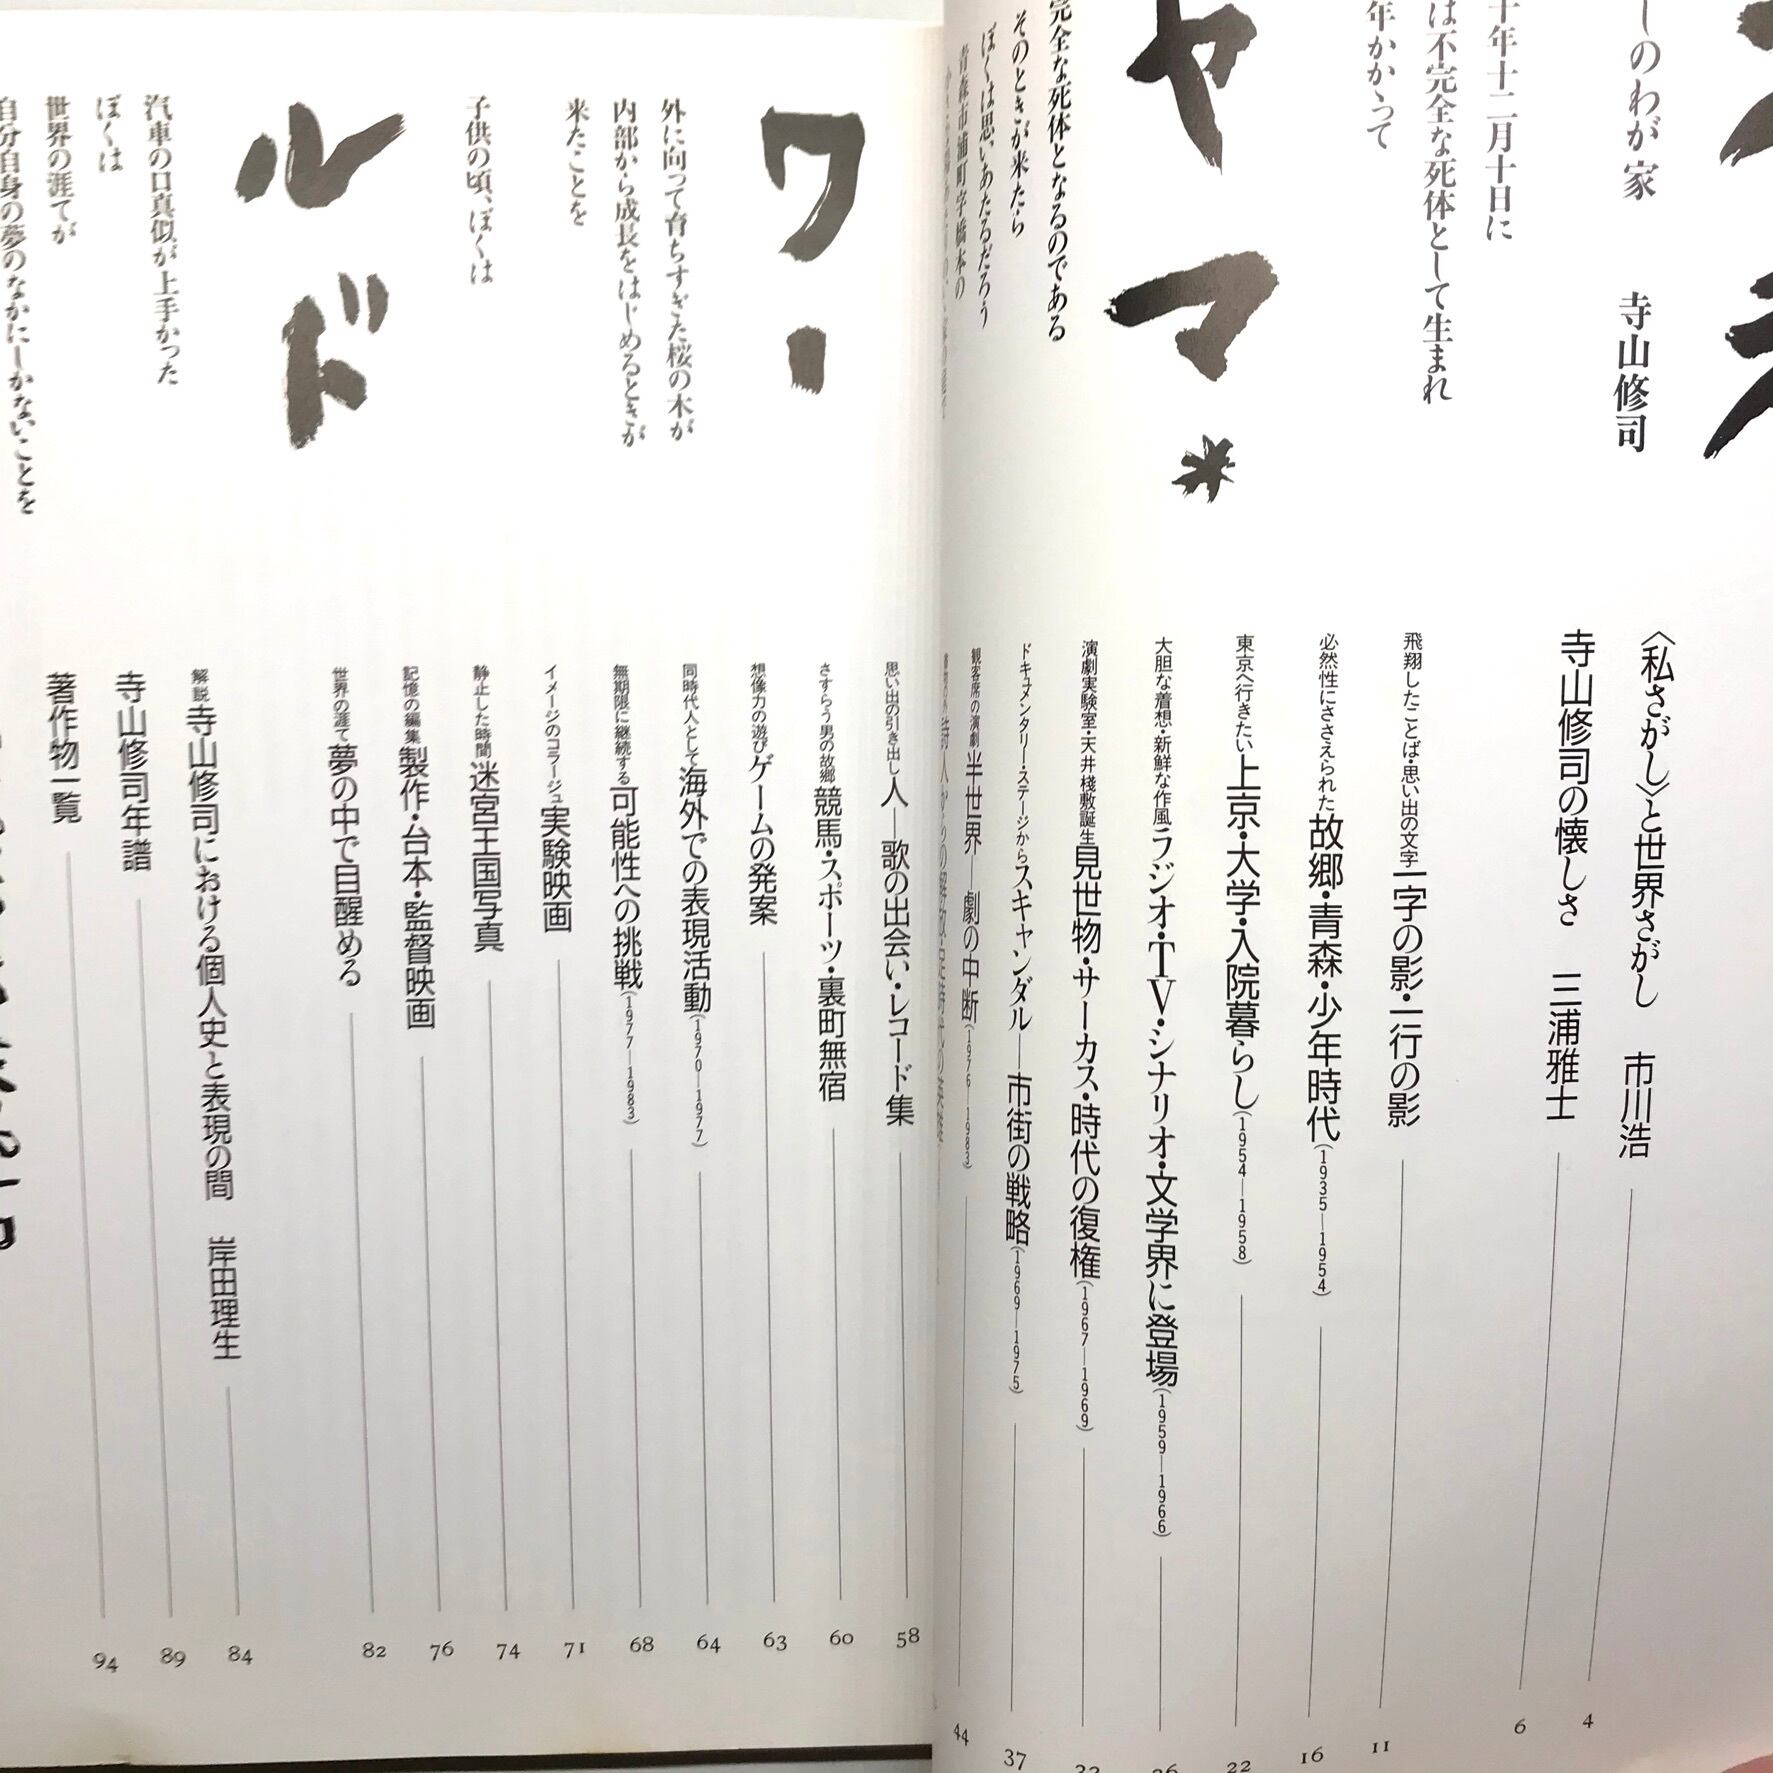 しのわが家　寺山修司
十年十二月十日に
は不完全な死体として生まれ
年かかって
ヤマ*
完全な死体となるのである
そのときが来たら
ぼくは思いあたるだろう
青森市浦町字橋本の
〈私さがし〉と世界さがし　市川浩 4
寺山修司の懐しさ　三浦雅士 6
飛翔したことば・思い出の文字 一字の影・一行の影 11
必然性にささえられた 故郷・青森・少年時代(1935—1954) 16
東京へ行きたい 上京・大学・入院暮らし(1954—1958) 22
大胆な着想・新鮮な作風 ラジオ・TV・シナリオ・文学界に登場(1959—1966)
演劇実験室・天井棧敷誕生 見世物・サーカス・時代の復権(1967—1969)
ドキュメンタリー・ステージから スキャンダル—市街の戦略(1969—1975) 37
観客席の演劇 半世界—劇の中断(1976—1983) 44
ワールド
外に向って育ちすぎた桜の木が
内部から成長をはじめるときが
来たことを
子供の頃、ぼくは
汽車の口真似が上手かった
ぼくは
世界の涯てが
自分自身の夢のなかにしかないことを
思い出の引き出し 人—歌の出会い・レコード集 58
さすらう男の故郷 競馬・スポーツ・裏町無宿 60
想像力の遊び ゲームの発案 63
同時代人として 海外での表現活動(1970—1977) 64
無期限に継続する 可能性への挑戦(1977—1983) 68
イメージのコラージュ 実験映画 71
静止した時間 迷宮王国写真 74
記憶の編集 製作・台本・監督映画 76
世界の涯て 夢の中で目醒める 82
解説 寺山修司における個人史と表現の間　岸田理生 84
寺山修司年譜 89
著作物一覧 94